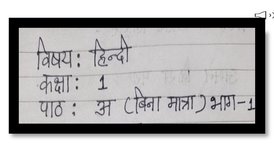 विषय: हिन्दी
कक्षा: 1
पाठ: अ (बिना मात्रा) भाग-1